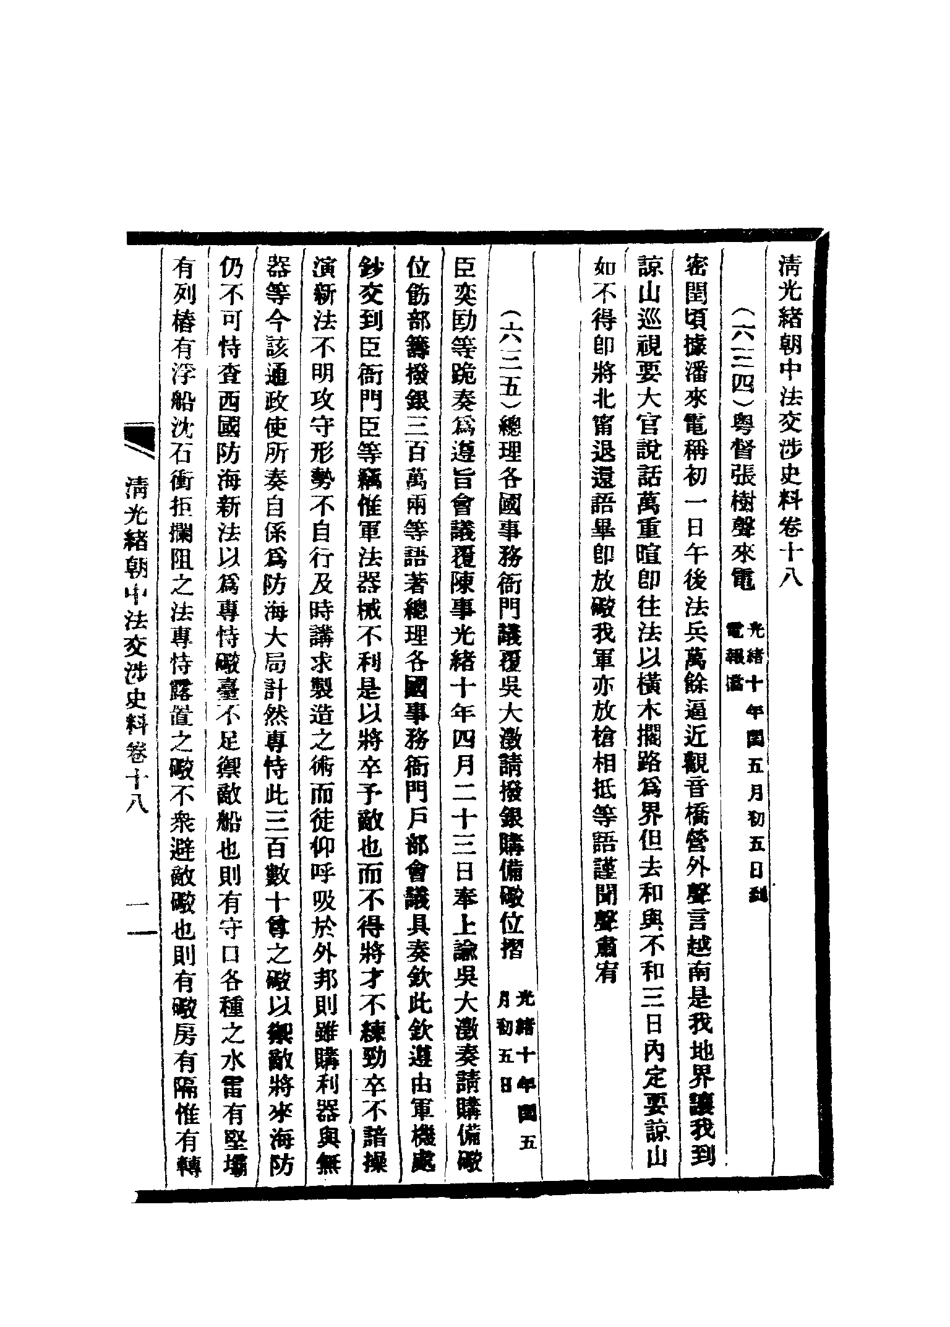 清光緒朝中法交涉史料卷十八
(六三四)粵督張樹聲來電 光緒十年閏五月初五日到
電報檔
密閏頃據潘來電稱初一日午後法兵萬餘逼近觀音橋營外聲言越南是我地界讓我到
諒山巡視要大官說話萬重暄卽往法以橫木攔路爲界但去和與不和三日內定要諒山
如不得卽將北甯退還語畢卽放礮我軍亦放槍相抵等語謹聞聲肅宥
(六三五)總理各國事務衙門議覆吳大澂請撥銀購備礮位摺 光緒十年閏五
月初五日
臣奕劻等跪奏爲遵旨會議覆陳事光緒十年四月二十三日奉上諭吳大澂奏請購備礮
位飭部籌撥銀三百萬兩等語著總理各國事務衙門戶部會議具奏欽此欽遵由軍機處
鈔交到臣衙門臣等竊惟軍法器械不利是以將卒予敵也而不得將才不練勁卒不諳操
演新法不明攻守形勢不自行及時講求製造之術而徒仰呼吸於外邦則雖購利器與無
器等今該通政使所奏自係爲防海大局計然專恃此三百數十尊之礮以禦敵將來海防
仍不可恃查西國防海新法以爲專恃礮臺不足禦敵船也則有守口各種之水雷有堅壩
有列樁有浮船沈石衝拒攔阻之法專恃露置之礮不衆避敵礮也則有礮房有隔惟有轉
清光緒朝中法交涉史料卷十八
一